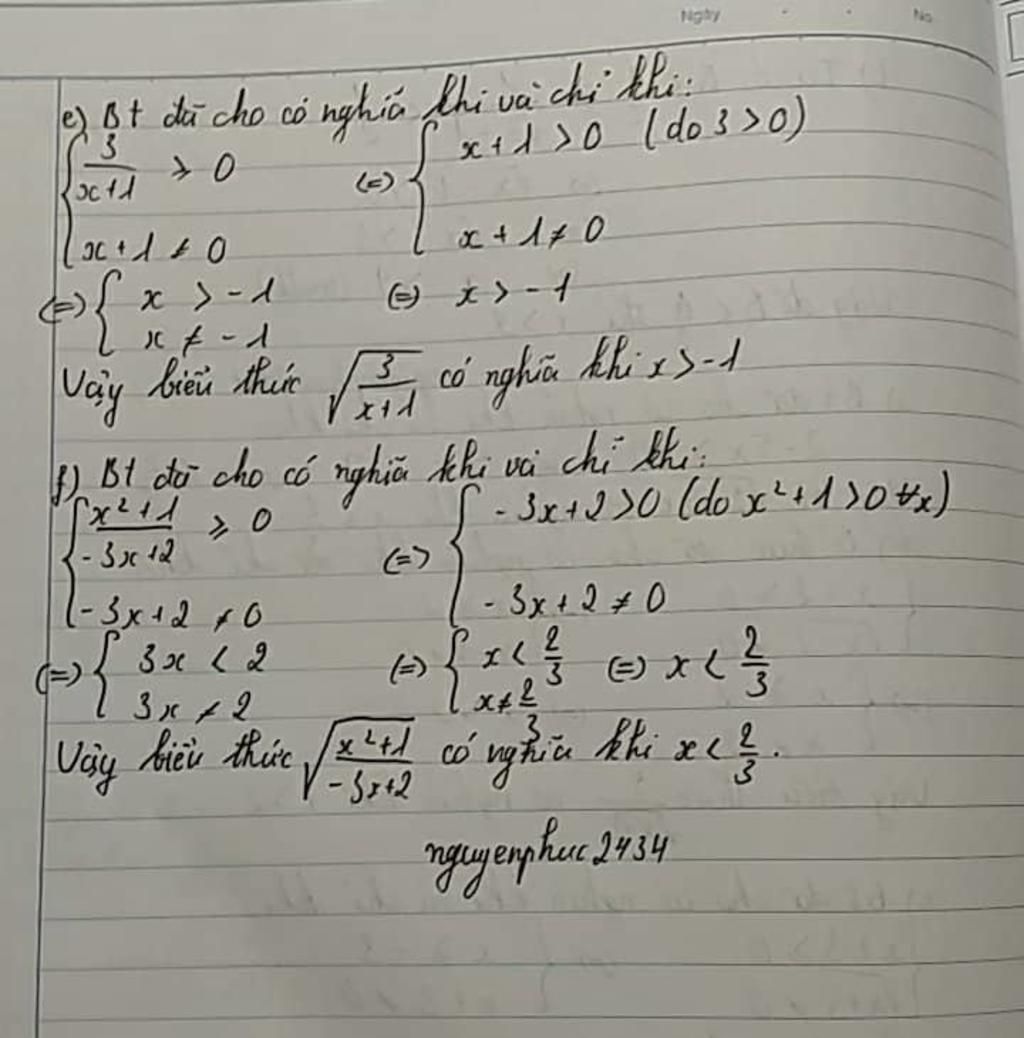 Ngày No.
e) Bt đã cho có nghĩa khi và chỉ khi:
{ 3/(x+1) ≥ 0 (=) { x+1 > 0 (do 3 > 0)
x+1 ≠ 0 x+1 ≠ 0
(=) { x > -1 (=) x > -1
x ≠ -1
Vậy biểu thức √(3/(x+1)) có nghĩa khi x > -1
f) Bt đã cho có nghĩa khi và chỉ khi:
{ (x²+1)/(-3x+2) ≥ 0 (=) { -3x+2 > 0 (do x²+1 > 0 ∀x)
-3x+2 ≠ 0 -3x+2 ≠ 0
(=) { 3x < 2 (=) { x < 2/3 (=) x < 2/3
3x ≠ 2 x ≠ 2/3
Vậy biểu thức √((x²+1)/(-3x+2)) có nghĩa khi x < 2/3.
nguyenphuc2434